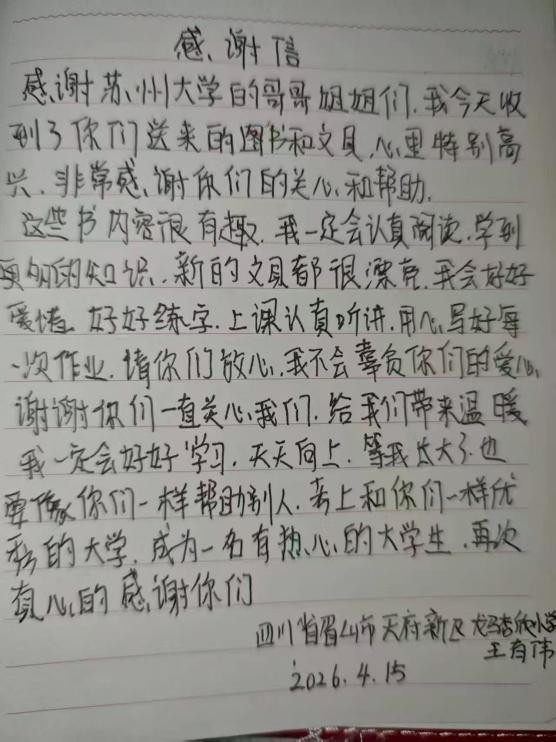 感谢信
感谢苏州大学的哥哥姐姐们.我今天收
到了你们送来的图书和文具.心里特别高
兴.非常感谢你们的关心和帮助.
这些书内容很有趣.我一定会认真阅读.学到
更多的知识.新的文具都很漂亮.我会好好
爱惜.好好练字.上课认真听讲.用心写好每
一次作业.请你们放心.我不会辜负你们的爱心.
谢谢你们一直关心我们.给我们带来温暖
我一定会好好学习.天天向上.等我长大了.也
要像你们一样帮助别人.考上和你们一样优
秀的大学.成为一名有热心的大学生.再次
真心的感谢你们
四川省眉山市天府新区龙马 小学
王有伟
2026.4.15